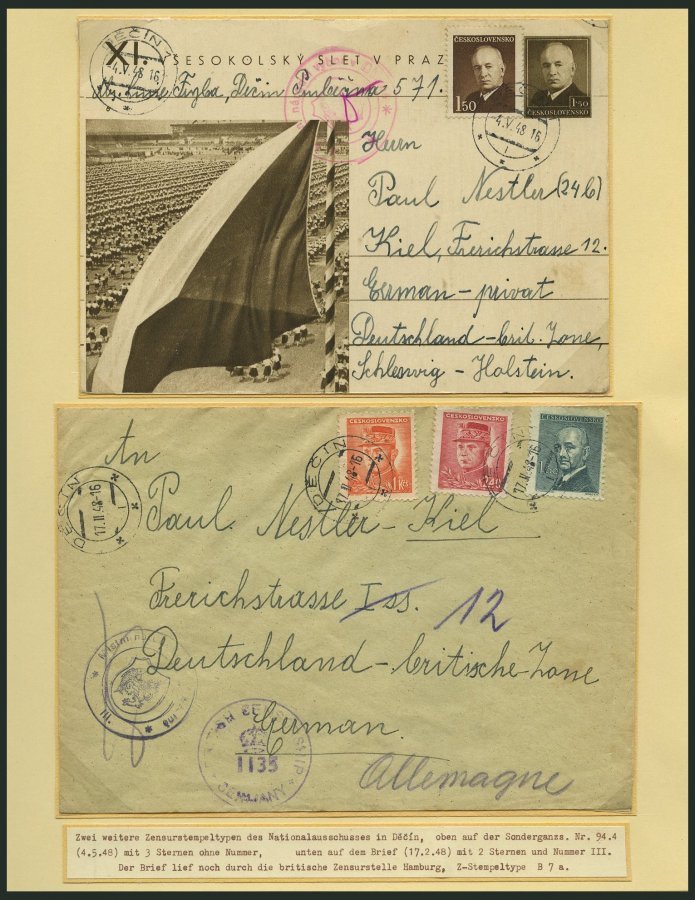 XI. VŠESOKOLSKÝ SLET V PRAZE
DĚČÍN 1
-4.V.48 16
Děčín 571.
ČESKOSLOVENSKO
1·50
ČESKOSLOVENSKO
1·50
-4.V.48-16
Herrn
Paul Nestler (24b)
Kiel, Frerichstrasse 12.
German - privat
Deutschland - brit. Zone,
Schleswig - Holstein.
DĚČÍN 1
17.II.48-16
DĚČÍN
17.II.48-16
1 Kčs
ČESKOSLOVENSKO
2·40
17.II.48-16
ČESKOSLOVENSKO
An
Paul Nestler - Kiel
Frerichstrasse Iss. 12
Deutschland - britische Zone
German.
Allemagne
III.
CENSORSHIP
1135
GERMANY
Zwei weitere Zensurstempeltypen des Nationalausschusses in Děčín, oben auf der Sonderganzs. Nr. 94.4
(4.5.48) mit 3 Sternen ohne Nummer, unten auf dem Brief (17.2.48) mit 2 Sternen und Nummer III.
Der Brief lief noch durch die britische Zensurstelle Hamburg, Z-Stempeltype B 7 a.